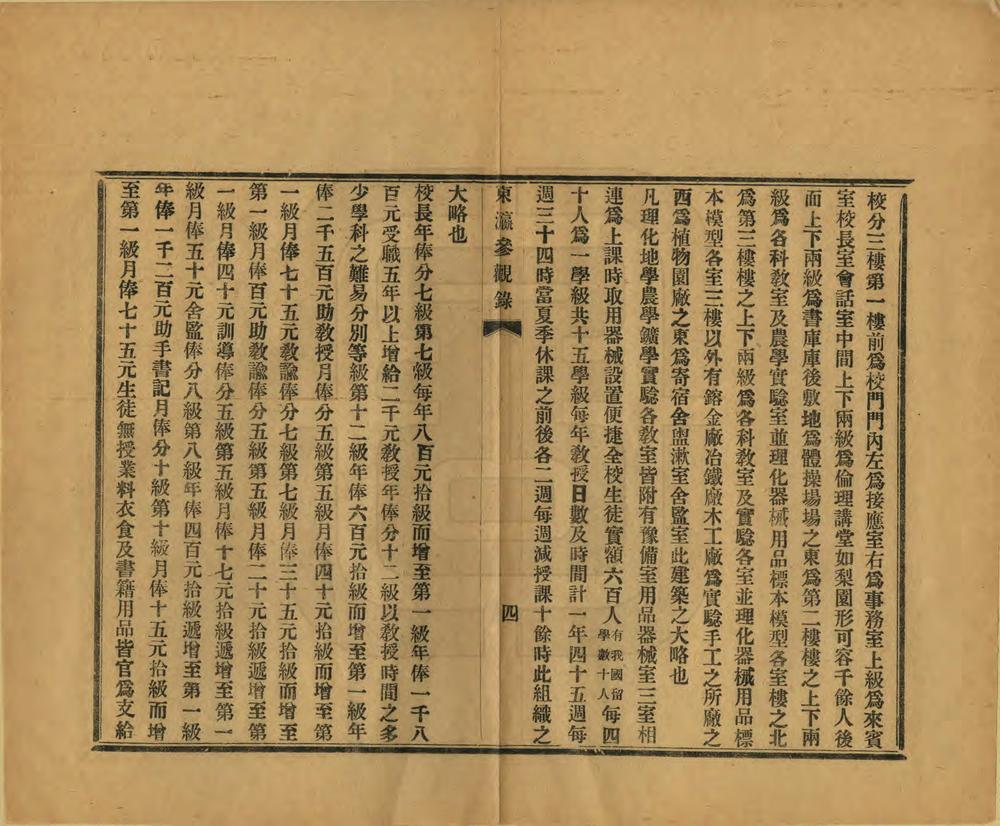 校分三樓第一樓前爲校門門內左爲接應室右爲事務室上級爲來賓
室校長室會話室中間上下兩級爲倫理講堂如梨園形可容千餘人後
面上下兩級爲書庫庫後敷地爲體操場場之東爲第二樓樓之上下兩
級爲各科教室及農學實驗室並理化器械用品標本模型各室樓之北
爲第三樓樓之上下兩級爲各科教室及實驗各室並理化器械用品標
本模型各室三樓以外有鎔金廠冶鐵廠木工廠爲實驗手工之所廠之
西爲植物園廠之東爲寄宿舍盥漱室舍監室此建築之大略也
凡理化地學農學鑛學實驗各教室皆附有豫備室用品器械室三室相
連爲上課時取用器械設置便捷全校生徒實額六百人有我國留學數十人每四
十人爲一學級共十五學級每年教授日數及時間計一年四十五週每
週三十四時當夏季休課之前後各二週每週減授課十餘時此組織之
東瀛參觀錄 四
大略也
校長年俸分七級第七級每年八百元拾級而增至第一級年俸一千八
百元受職五年以上增給二千元教授年俸分十二級以教授時間之多
少學科之難易分別等級第十二級年俸六百元拾級而增至第一級年
俸二千五百元助教授月俸分五級第五級月俸四十元拾級而增至第
一級月俸七十五元教諭俸分七級第七級月俸三十五元拾級而增至
第一級月俸百元助教諭俸分五級第五級月俸二十元拾級遞增至第
一級月俸四十元訓導俸分五級第五級月俸十七元拾級遞增至第一
級月俸五十元舍監俸分八級第八級年俸四百元拾級遞增至第一級
年俸一千二百元助手書記月俸分十級第十級月俸十五元拾級而增
至第一級月俸七十五元生徒無授業料衣食及書籍用品皆官爲支給